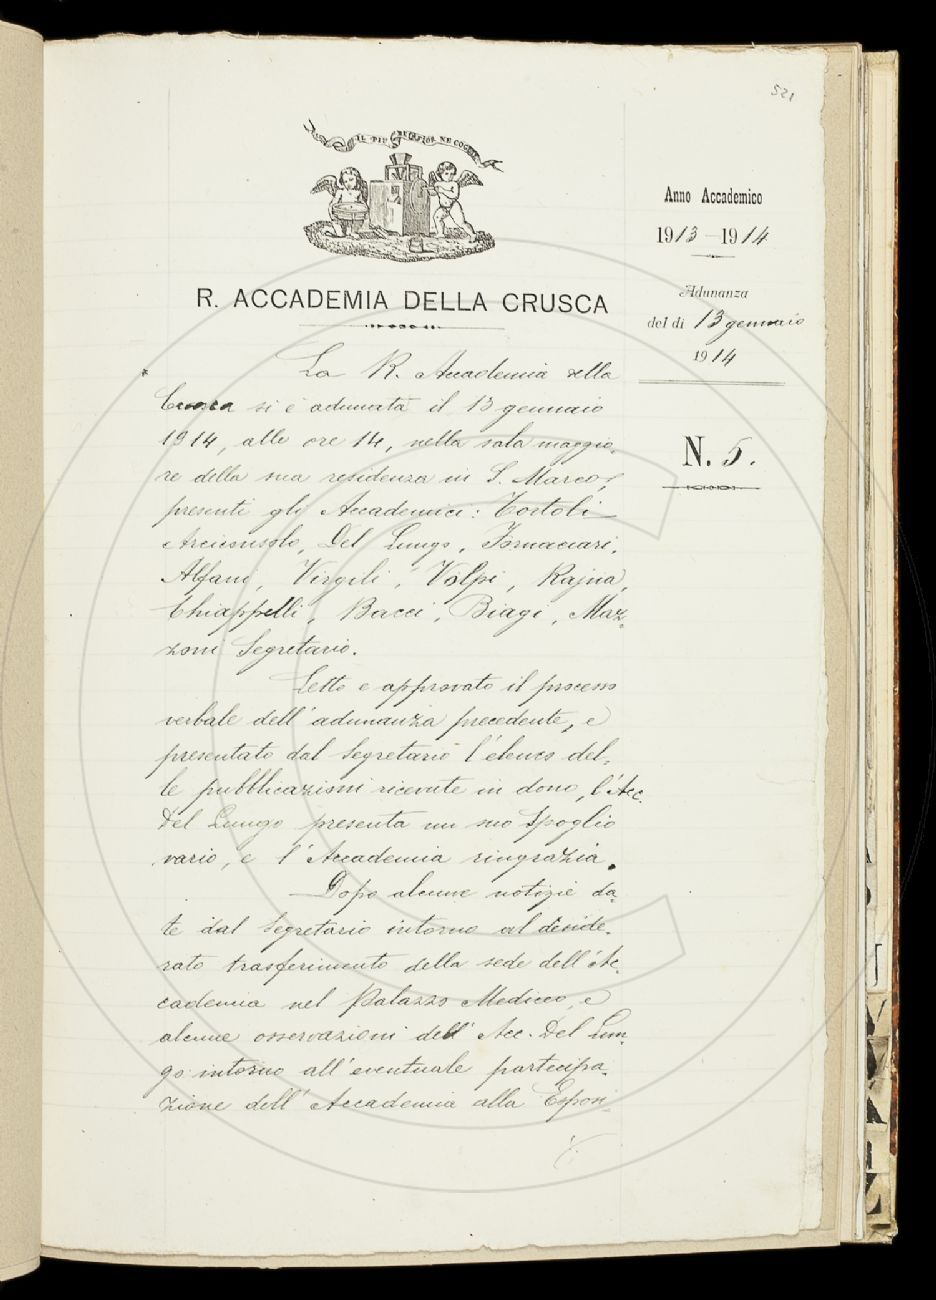 521
IL PIU BEL FIOR NE COGLIE
Anno Accademico
1913-1914
Adunanza
del dì 13 gennaio
1914
N. 5.
R. ACCADEMIA DELLA CRUSCA
La R. Accademia della
Crusca si è adunata il 13 gennaio
1914, alle ore 14, nella sala maggio-
re della sua residenza in S. Marco,
presenti gli Accademici: Tortoli
Arciconsolo, Del Lungo, Fornaciari,
Alfani, Virgili, Volpi, Rajna,
Chiappelli, Bacci, Biagi, Maz-
zoni Segretario.
Letto e approvato il processo
verbale dell'adunanza precedente, e
presentato dal Segretario l'elenco del-
le pubblicazioni ricevute in dono, l'Acc.
Del Lungo presenta un suo Spoglio
vario, e l'Accademia ringrazia.
Dopo alcune notizie da-
te dal Segretario intorno al deside-
rato trasferimento della sede dell'Ac-
cademia nel Palazzo Mediceo, e
alcune osservazioni dell'Acc. Del Lun-
go intorno all'eventuale partecipa-
zione dell'Accademia alla Esposi-